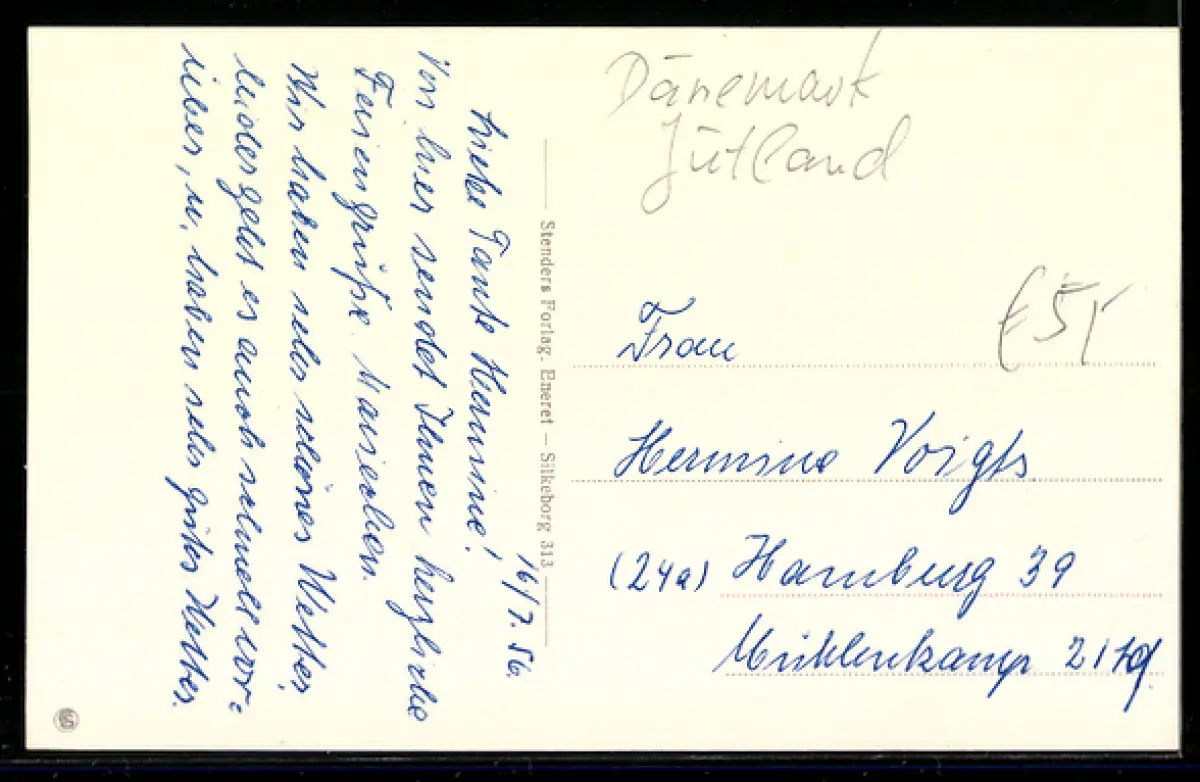 16/7. 56.
Liebe Tante Hermine!
Von hier sendet Ihnen herzliche
Feriengrüße Mariechen.
Wir haben sehr schönes Wetter,
leider geht es auch schnell vor=
über, u. haben sehr gutes Wetter.
Stenders Forlag. Eneret — Silkeborg 313
Dänemark
Jütland
€ 5,-
Frau
Hermine Voigts
(24a) Hamburg 39
Mühlenkamp